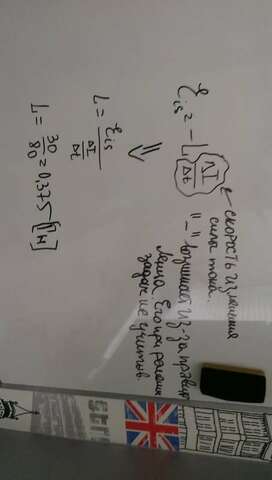 ℰis = - L ΔI/Δt ← скорость изменения
сила тока.
"-" возникает из-за правила
Ленца. Его при решении
задач не учитыв.
⇓
L = ℰis / (ΔI/Δt)
L = 30/80 = 0,375 [Гн]